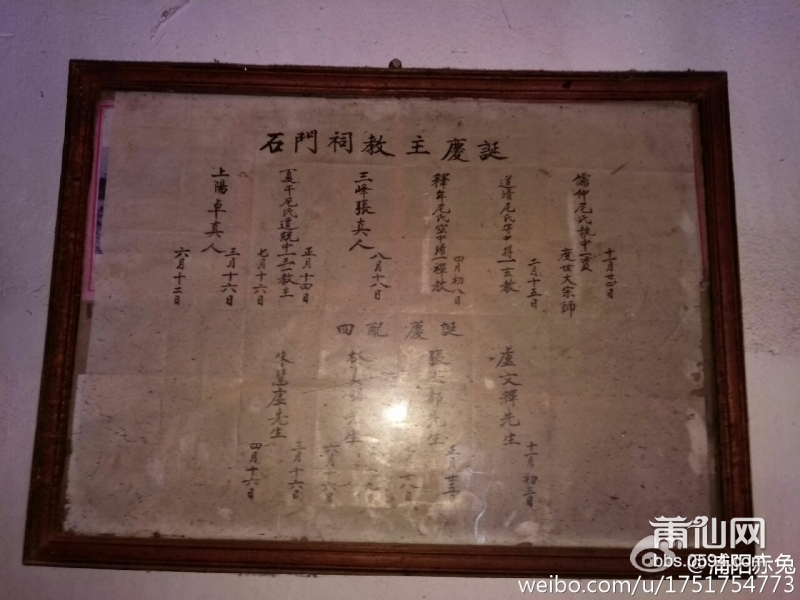 石門祠教主慶誕
儒仲尼氏執中一貫
度世大宗師
十一月廿四日
道清尼氏守中得一玄教
二月十五日
釋牟尼氏空中歸一禪教
四月初八日
三峰張真人
八月十八日
夏午尼氏道統中一三一教主
正月十四日
七月十六日
上陽卓真人
三月十六日
六月十二日
四配慶誕
盧文輝先生
十一月初三日
張 先生
正月廿三
林 先生
六月十六日
朱慧虛先生
三月十六日
四月十六日
莆仙网
bbs.0594.com
@莆阳赤兔
weibo.com/u/1751754773